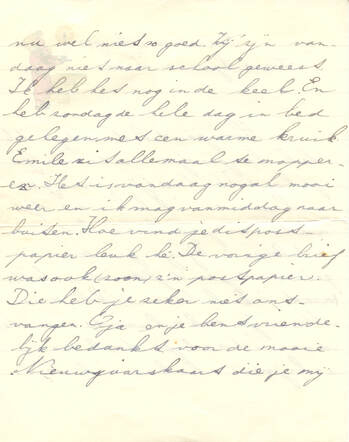 nu wel niet zo goed. Wij zijn van-
daag niet naar school geweest.
Ik heb het nog in de keel. En
heb zondag de hele dag in bed
gelegen, met een warme kruik
Emile zit allemaal te mopper-
en. Het is vandaag nogal mooi
weer en ik mag vanmiddag naar
buiten. Hoe vind je dit post-
papier leuk hè. De vorige brief
was ook (zoon) z'n postpapier.
Die heb je zeker niet ont-
vangen. O ja en je bent vriende-
lijk bedankt voor de mooie
Nieuwjaarskaart die je mij